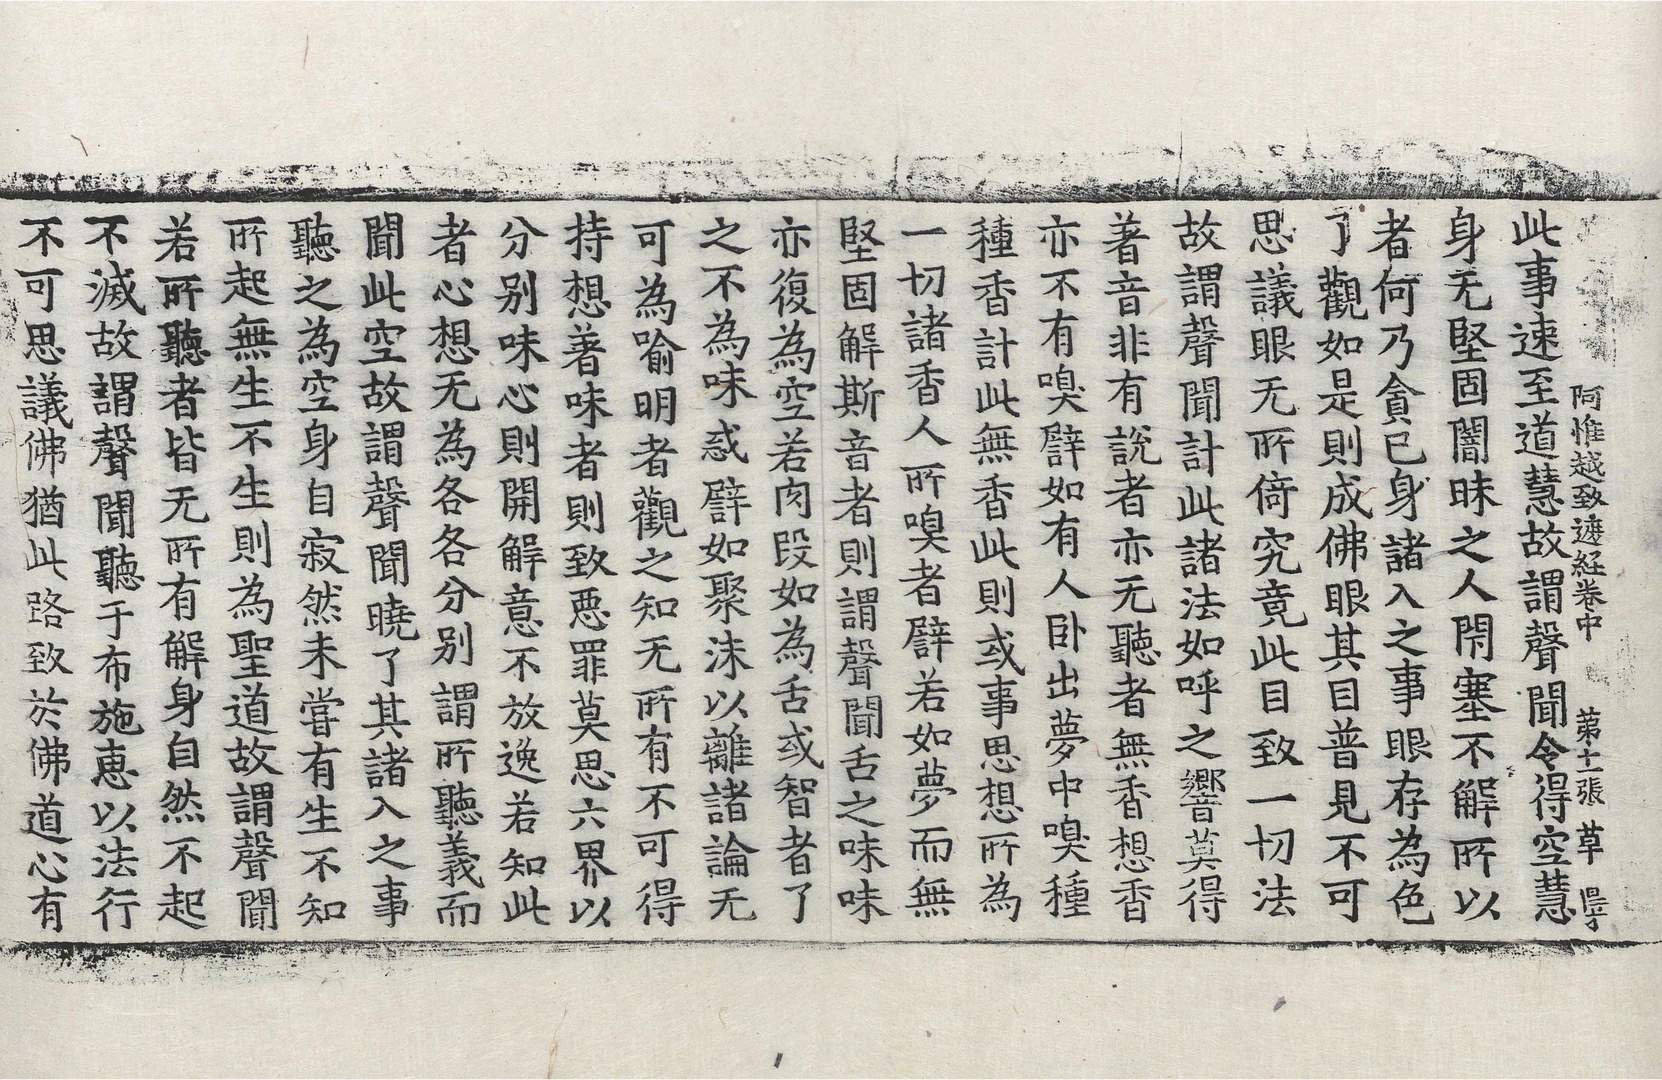 阿惟越致遮経卷中　第十一張　草
此事速至道慧故謂聲聞令得空慧
身无堅固闇昧之人閇塞不解所以
者何乃貪已身諸入之事眼存為色
了觀如是則成佛眼其目普見不可
思議眼无所倚究竟此目致一切法
故謂聲聞計此諸法如呼之響莫得
著音非有說者亦无聽者無香想香
亦不有嗅譬如有人卧出夢中嗅種
種香計此無香此則或事思想所為
一切諸香人所嗅者譬若如夢而無
堅固解斯音者則謂聲聞舌之味味
亦復為空若肉段如為舌或智者了
之不為味惑譬如聚沫以離諸論无
可為喻明者觀之知无所有不可得
持想著味者則致惡罪莫思六界以
分別味心則開解意不放逸若知此
者心想无為各各分別謂所聽義而
聞此空故謂聲聞曉了其諸入之事
聽之為空身自寂然未嘗有生不知
所起無生不生則為聖道故謂聲聞
若所聽者皆无所有解身自然不起
不滅故謂聲聞聽于布施惠以法行
不可思議佛猶此路致於佛道心有